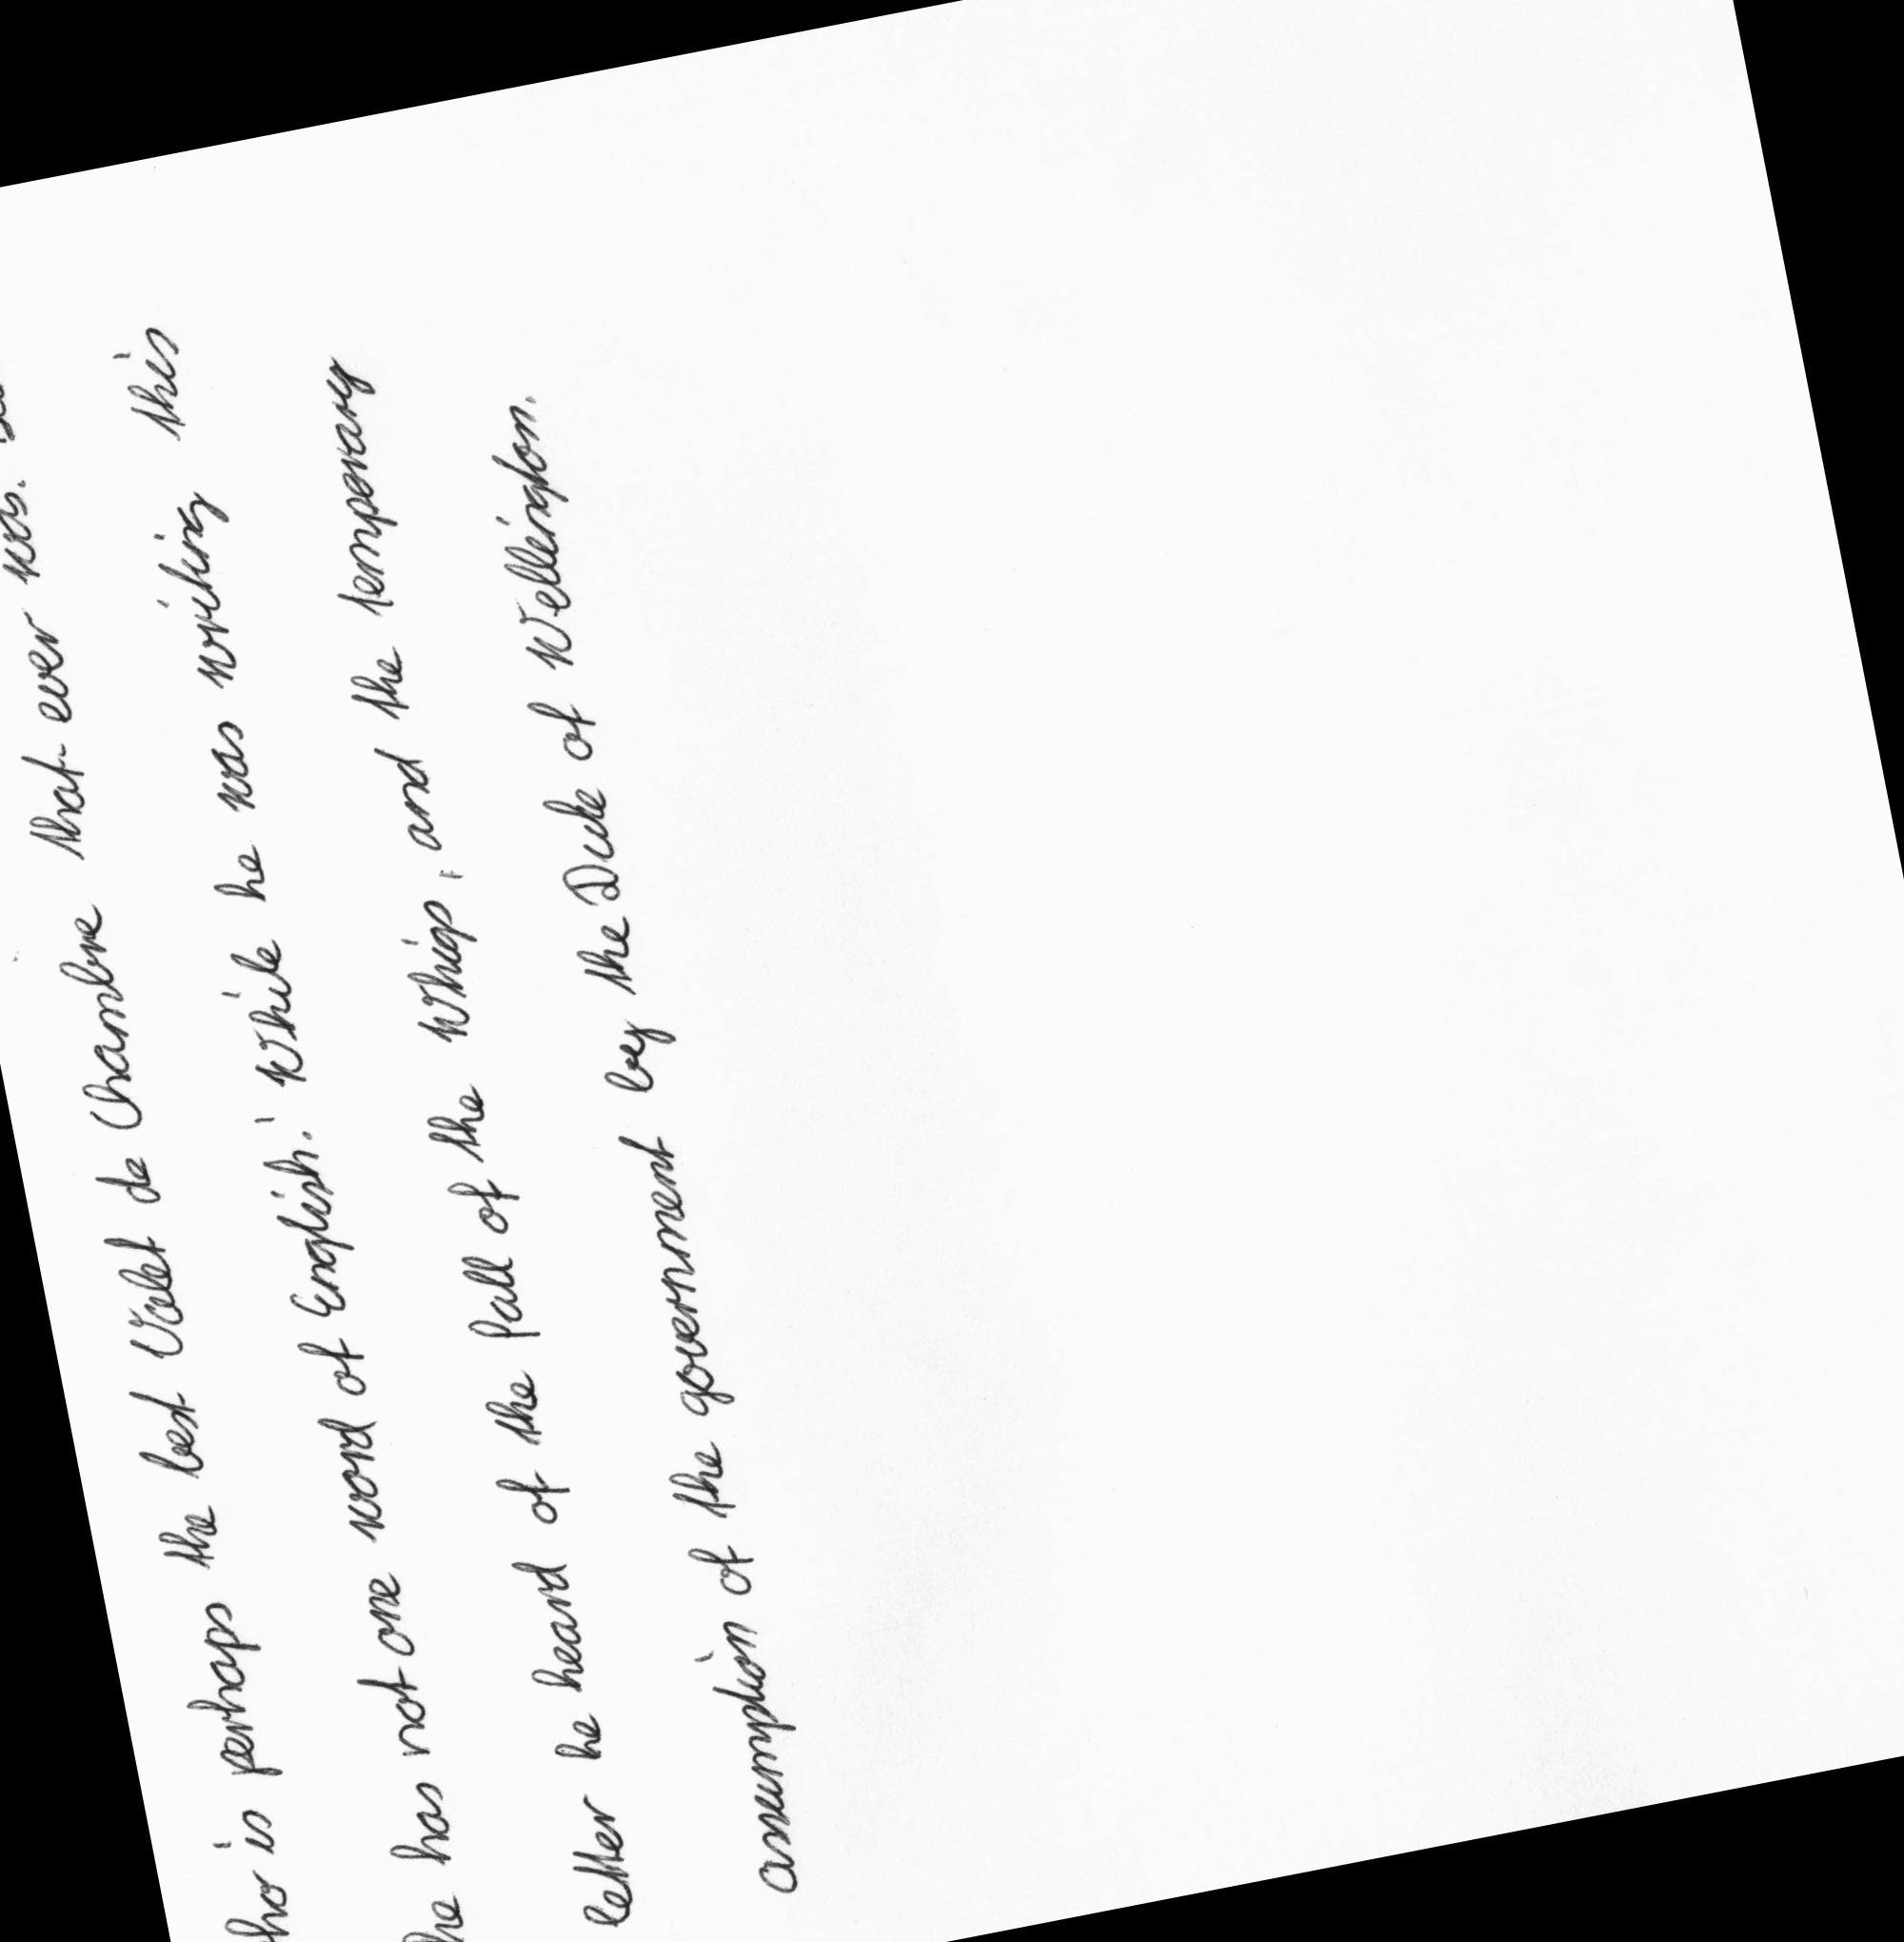 who is perhaps the best Valet de Chambre that ever was.
he has not one word of English.' While he was writing this
letter he heard of the fall of the Whigs, and the temporary
assumption of the government by the Duke of Wellington.